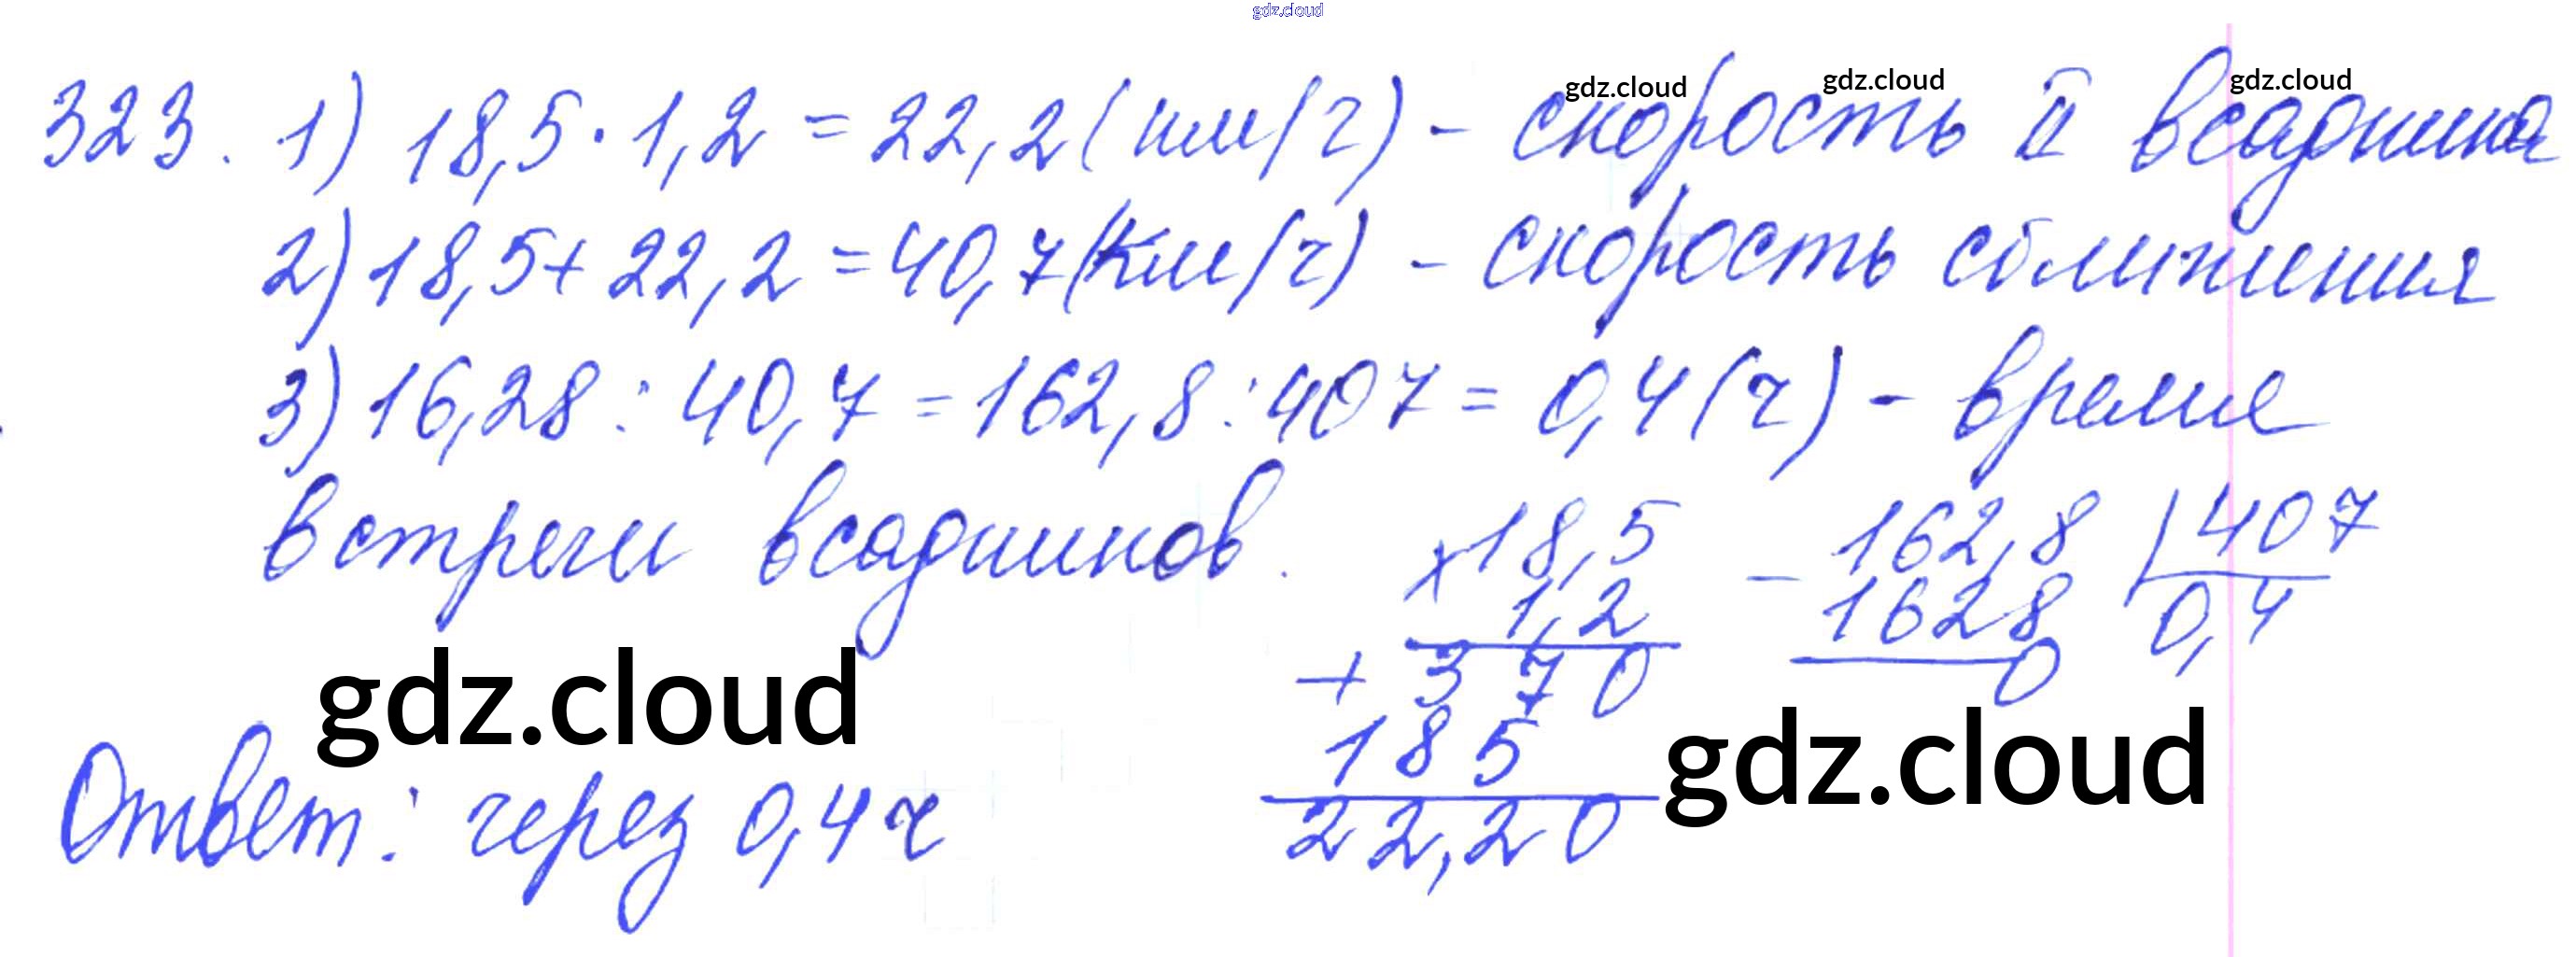 gdz.cloud
gdz.cloud gdz.cloud gdz.cloud
323. 1) 18,5 · 1,2 = 22,2 (км/г) - скорость II всадника
2) 18,5 + 22,2 = 40,7 (км/г) - скорость сближения
3) 16,28 : 40,7 = 162,8 : 407 = 0,4 (г) - время
встречи всадников.
× 18,5
1,2
+ 3 7 0
1 8 5
22,20
- 162,8 | 407
1628 0,4
0
gdz.cloud
gdz.cloud
Ответ: через 0,4 ч